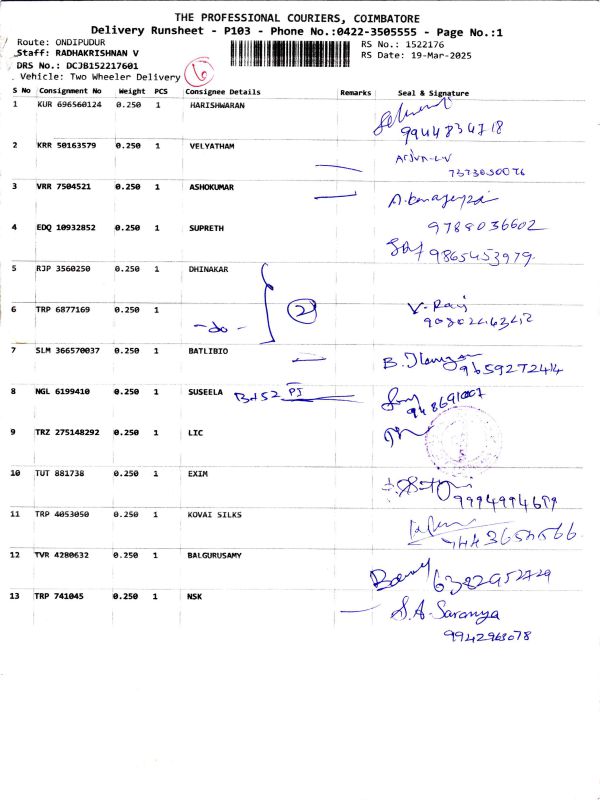 THE PROFESSIONAL COURIERS, COIMBATORE
Delivery Runsheet - P103 - Phone No.:0422-3505555 - Page No.:1
Route: ONDIPUDUR RS No.: 1522176
Staff: RADHAKRISHNAN V RS Date: 19-Mar-2025
DRS No.: DCJB152217601
Vehicle: Two Wheeler Delivery 6
S No Consignment No Weight PCS Consignee Details Remarks Seal & Signature
1 KUR 696560124 0.250 1 HARISHWARAN
9944834718
2 KRR 50163579 0.250 1 VELYATHAM
Arjun-L-V
7373030076
3 VRR 7504521 0.250 1 ASHOKUMAR
9788036602
4 EDQ 10932852 0.250 1 SUPRETH
9865453979
5 RJP 3560250 0.250 1 DHINAKAR
6 TRP 6877169 0.250 1 -do- 2 V-Raj
7 SLM 366570037 0.250 1 BATLIBIO
9659272414
8 NGL 6199410 0.250 1 SUSEELA
9 TRZ 275148292 0.250 1 LIC
10 TUT 881738 0.250 1 EXIM
11 TRP 4053050 0.250 1 KOVAI SILKS
12 TVR 4280632 0.250 1 BALGURUSAMY
6382952729
13 TRP 741045 0.250 1 NSK S.A.Saranya
9942963078